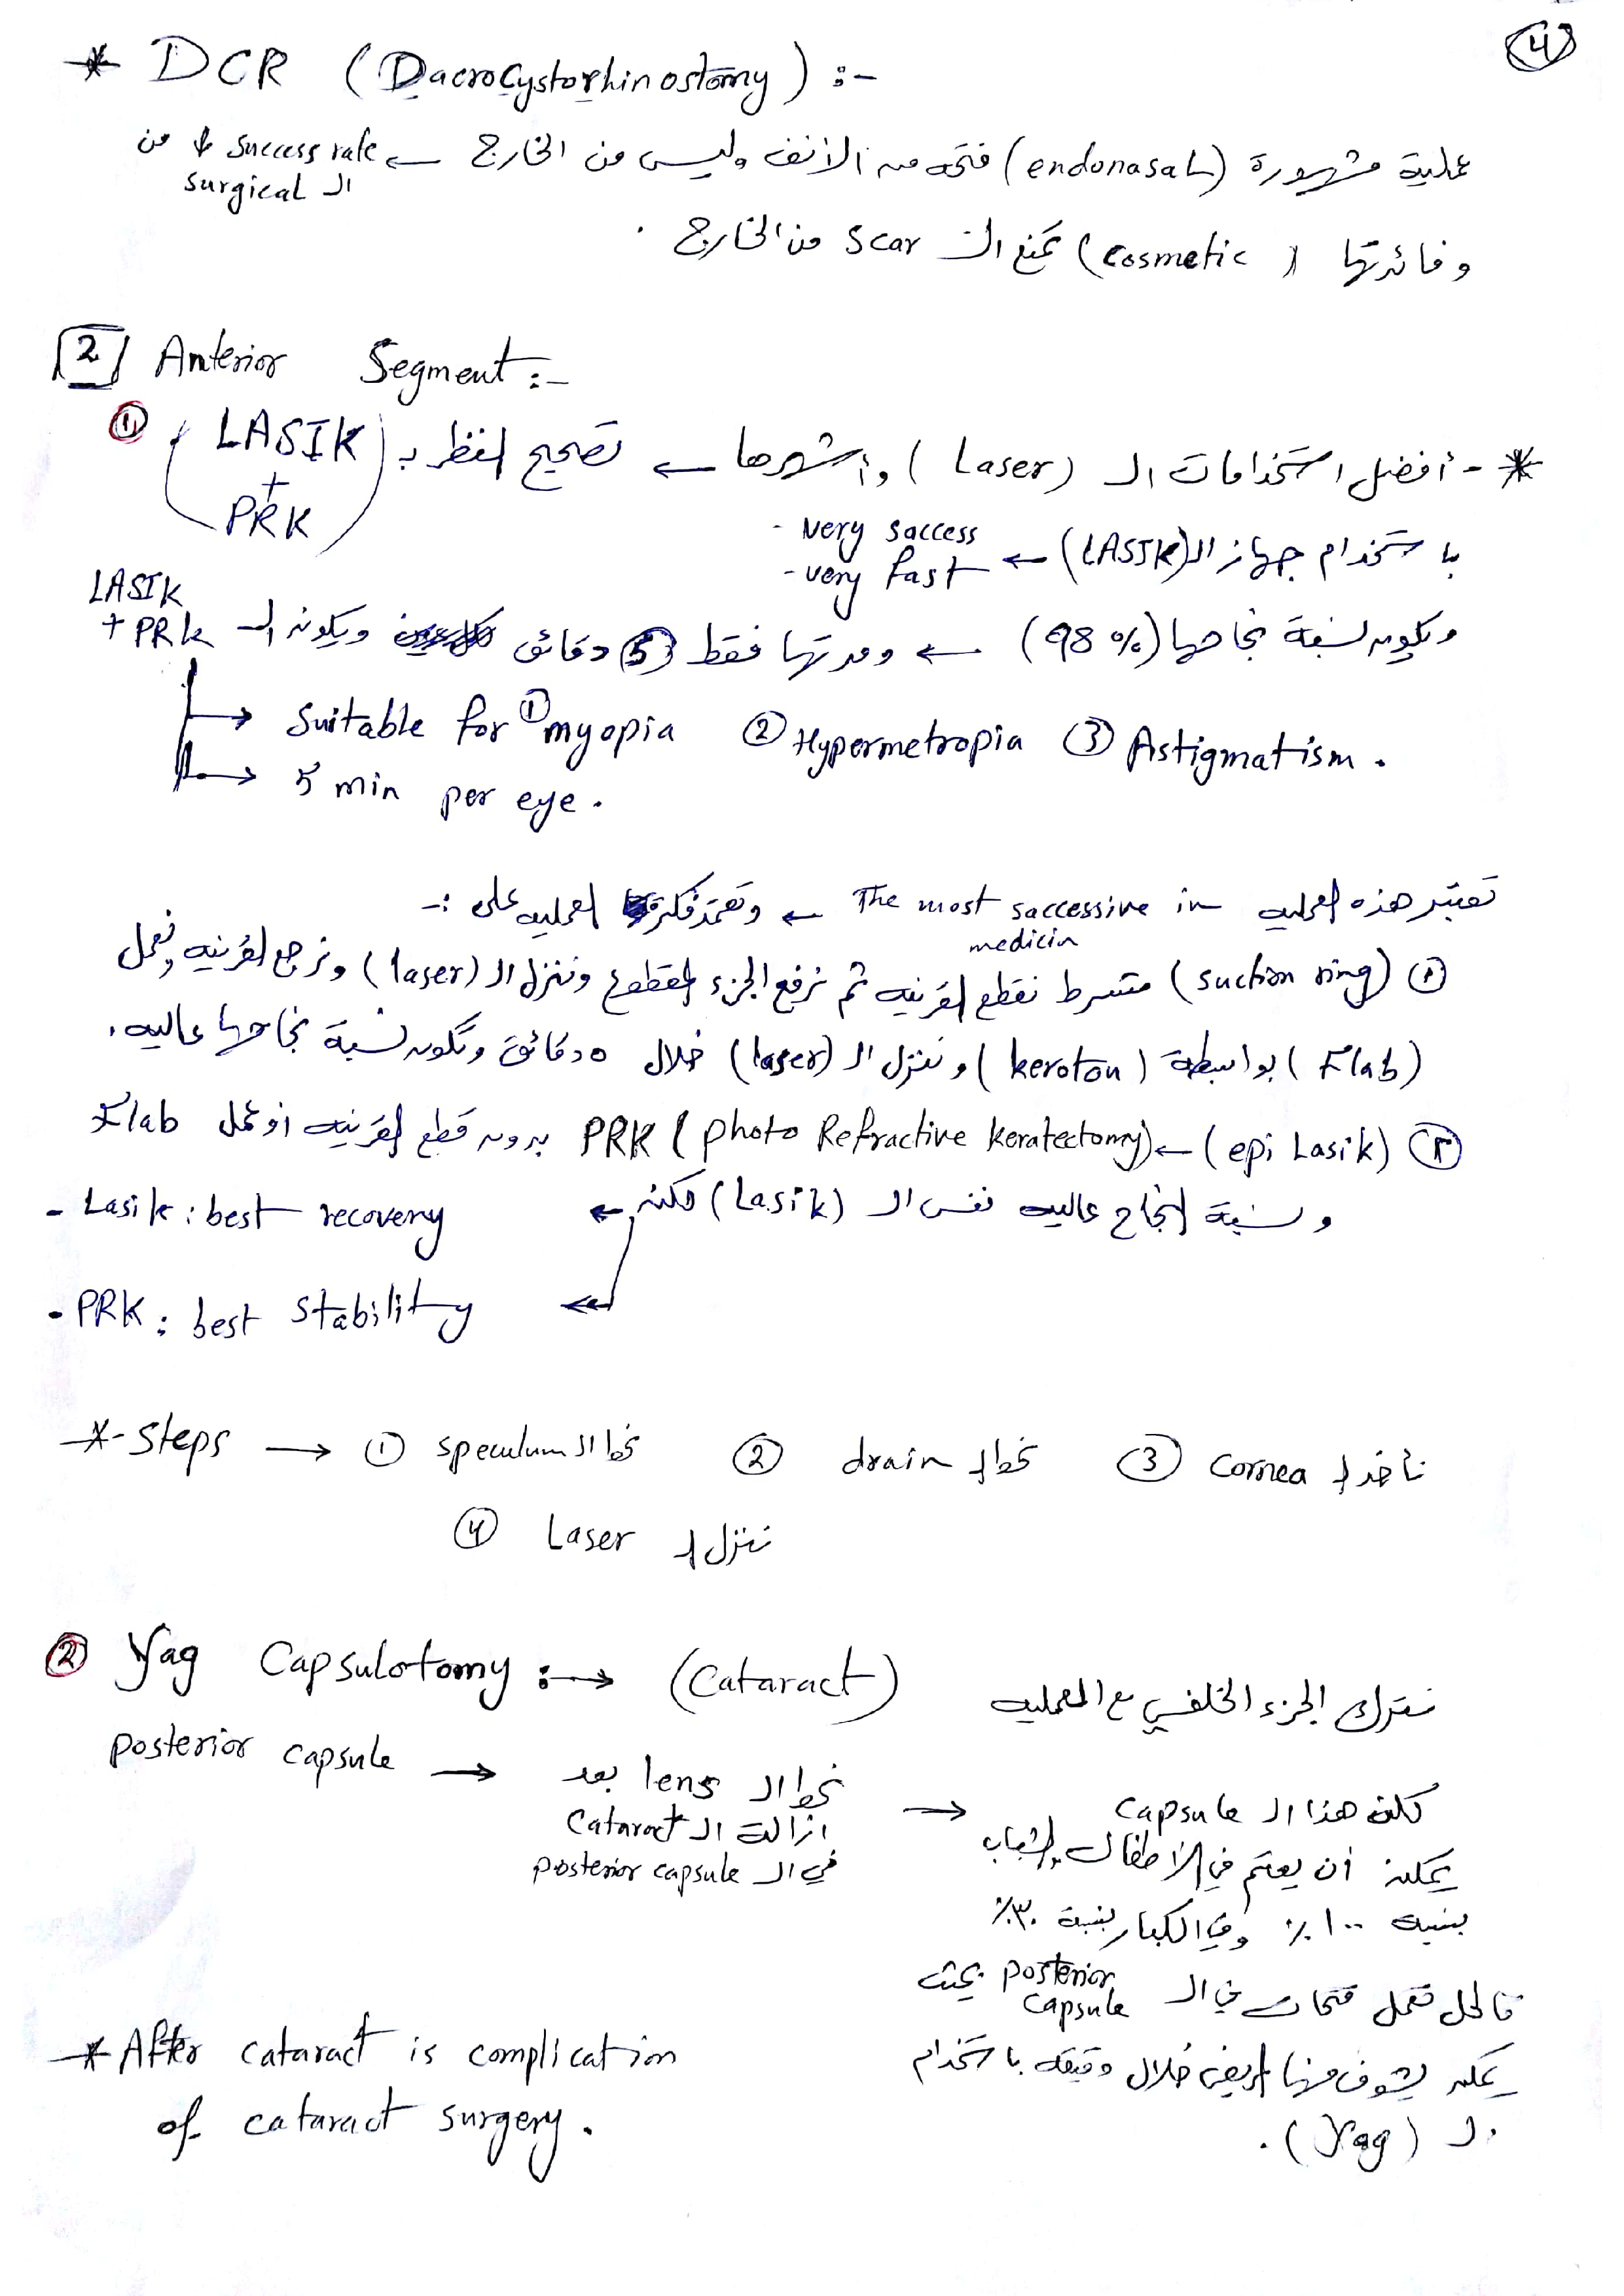 4
* DCR (Dacrocystorhinostomy) :-
عملية مشهورة (endonasal) فتحه من الأنف وليس من الخارج ← success rate ↓ من
الـ surgical
وفائدتها (cosmetic) تمنع الـ scar من الخارج .
2 Anterior Segment :-
* - أفضل استخدامات الـ (Laser) وأشهرها ← تصحيح النظر بـ (LASIK + PRK) ①
باستخدام جهاز الـ (LASIK) ← - very saccess
- very fast
وتكون نسبة نجاحها (98%) ← ومدتها فقط (5) دقائق ويكون الـ LASIK
+ PRK
→ Suitable for ① myopia ② Hypermetropia ③ Astigmatism .
→ 5 min per eye .
تعتبر هذه العملية The most saccessive in ← وتعتمد فكرة العملية على :-
medicin
① (suction ring) نقطع القرنيه ثم نرفع الجزء المقطوع وننزل الـ (laser) ونرجع القرنيه ونعمل
(Flab) بواسطة (keroton) وننزل الـ (laser) خلال ٥ دقائق وتكون نسبة نجاحها عاليه .
② (epi Lasik) ← PRK (photo Refractive keratectomy) بدون قطع القرنيه أو عمل Flab
ونسبة النجاح عاليه نفس الـ (Lasik) لكن ←
- Lasik : best recovery
- PRK : best stability
*- Steps → ① speculum نحط الـ ② drain نحط الـ ③ cornea نأخذ الـ
④ Laser ننزل الـ
② Yag Capsulotomy :→ (Cataract) نترك الجزء الخلفي مع العمليه
posterior capsule → نحط الـ lens بعد
ازالة الـ Cataract
في الـ posterior capsule
→ لكن هذا الـ capsule
يمكن أن يعتم في الأطفال والشباب
بنسبة ١٠٠٪ وفي الكبار بنسبة ٣٠٪
فالحل نعمل فتحات في الـ posterior capsule بحيث
يمكن يشوف منها المريض خلال دقيقه باستخدام
الـ (Yag) .
* After cataract is complication
of cataract surgery .